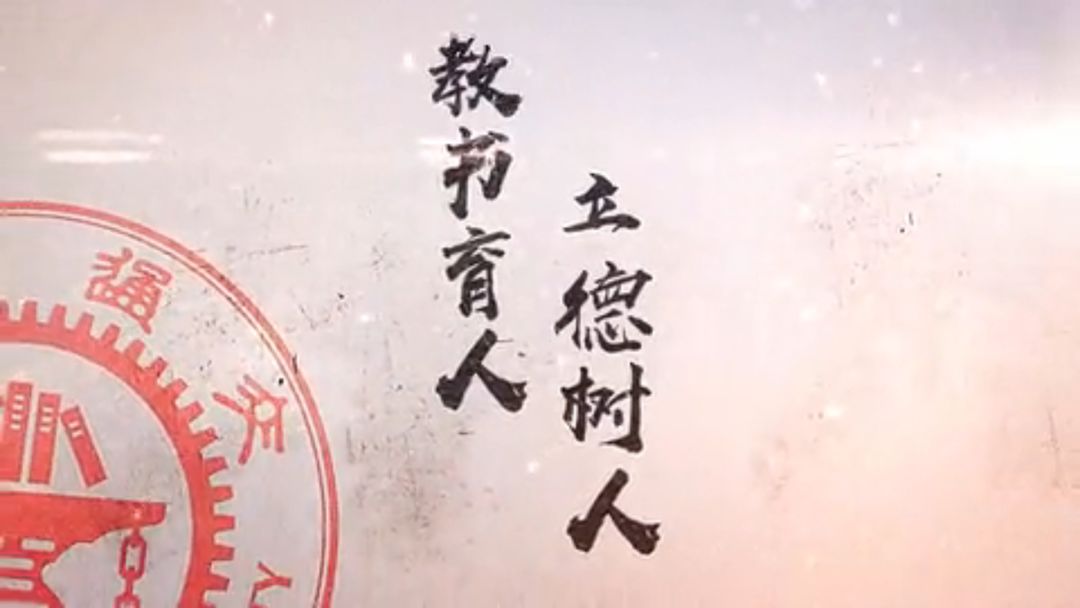 教书育人
立德树人
交通